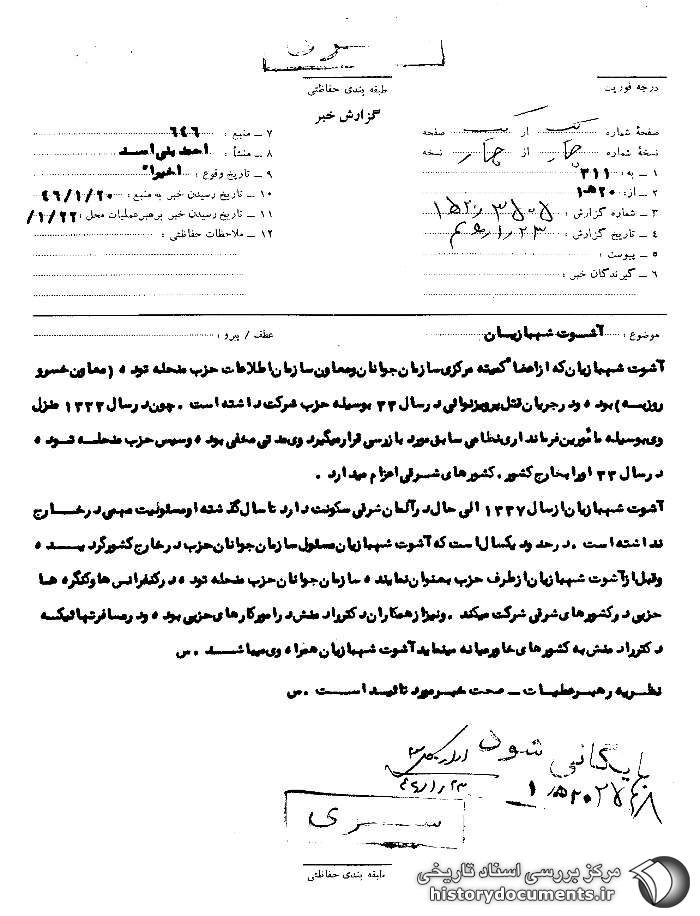 سری
طبقه بندی حفاظتی
درجه فوریت
گزارش خبر
صفحهٔ شماره یک از یک صفحه
نسخهٔ شماره چهار از چهار نسخه
۱ ـ به : ۳۱۱
۲ ـ از : ۲۰ ه‍ ۱
۳ ـ شماره گزارش :
۴ ـ تاریخ گزارش :
۵ ـ پیوست :
۶ ـ گیرندگان خبر :
۷ ـ منبع : ۶۴۶
۸ ـ منشأ : احمد بنی احمد
۹ ـ تاریخ وقوع : اخیرا"
۱۰ ـ تاریخ رسیدن خبر به منبع : ۴۶/۱/۲۰
۱۱ ـ تاریخ رسیدن خبر برهبرعملیات محل : /۱/۲۲
۱۲ ـ ملاحظات حفاظتی :
موضوع : آشوت شهبازیان
عطف / پیرو :
آشوت شهبازیان که از اعضا" کمیته مرکزی سازمان جوانان ومعاون سازمان اطلاعات حزب منحله توده (معاون خسرو
روزبه) بوده و در جریان قتل پرویز نوائی در سال ۳۳ بوسیله حزب شرکت داشته است . چون در سال ۱۳۳۳ منزل
وی بوسیله مأمورین فرمانداری نظامی سابق مورد بازرسی قرار میگیرد وی مدتی مخفی بوده وسپس حزب منحله توده
در سال ۳۳ اورا بخارج کشور . کشورهای شرقی اعزام میدارد .
آشوت شهبازیان از سال ۱۳۳۷ الی حال در آلمان شرقی سکونت دارد تا سال گذشته او مسئولیت مهمی در خارج
نداشته است . در حدود یکسال است که آشوت شهبازیان مسئول سازمان جوانان حزب در خارج کشور گردیده
وقبل از آشوت شهبازیان از طرف حزب بعنوان نماینده سازمان جوانان حزب منحله توده در کنفرانس ها وکنگره ها
حزبی در کشورهای شرقی شرکت میکند . ونیز از همکاران دکتر رادمنش در امور کارهای حزبی بوده و در مسافرتهائیکه
دکتر رادمنش به کشورهای خاورمیانه مینماید آشوت شهبازیان همراه وی میباشد . س
نظریه رهبر عملیات ـ صحت خبر مورد تائید است . س
بایگانی شود
سری
طبقه بندی حفاظتی
مرکز بررسی اسناد تاریخی
historydocuments.ir